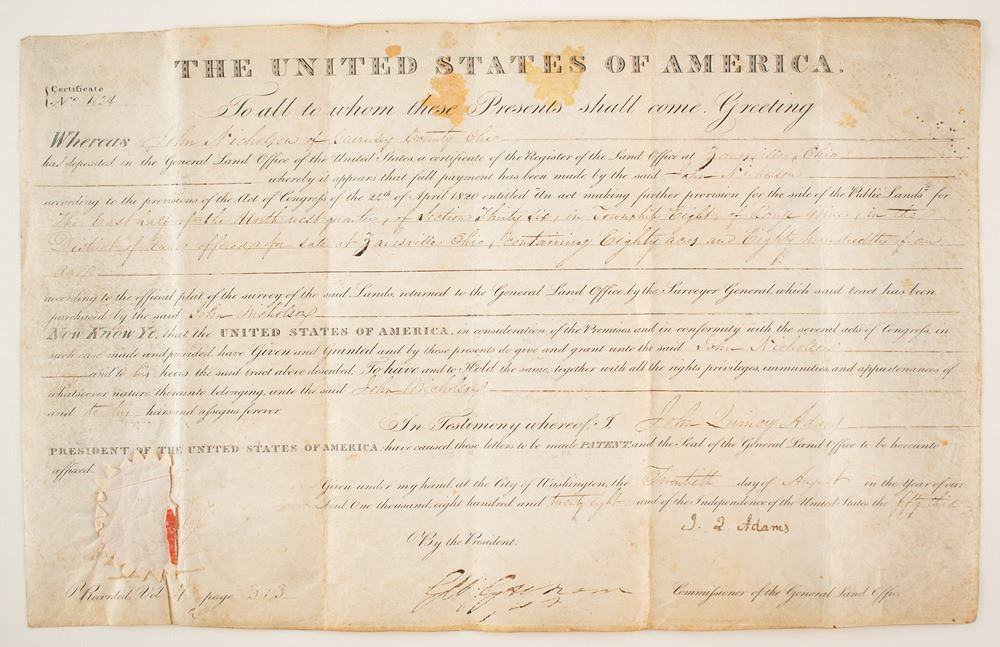 THE UNITED STATES OF AMERICA.
Certificate
No. 1624
To all to whom these Presents shall come, Greeting
Whereas John Nicholson of County Ohio
has deposited in the General Land Office of the United States, a certificate of the Register of the Land Office at Zanesville, Ohio
whereby it appears that full payment has been made by the said John Nicholson
according to the provisions of the Act of Congress of the 24th of April 1820 entitled An act making further provision for the sale of the Public Lands for
The East half of the North quarter, of Section Thirty Six, in Township Eight, of Range Nine, in the
District of Lands offered for sale at Zanesville Ohio, containing Eighty acres and Eighty hundredths of an
acre
according to the official plat of the survey of the said Lands, returned to the General Land Office by the Surveyor General, which said tract has been
purchased by the said John Nicholson
Now Know Ye, that the UNITED STATES OF AMERICA, in consideration of the Premises and in conformity with the several acts of Congress, in
such case made and provided, have Given and Granted and by these presents do give and grant unto the said John Nicholson
and to his heirs the said tract above described. To have and to Hold the same, together with all the rights privileges immunities and appurtenances of
whatsoever nature, thereunto belonging, unto the said John Nicholson
and to his heirs and assigns forever
In Testimony whereof I, John Quincy Adams
PRESIDENT OF THE UNITED STATES OF AMERICA, have caused these letters to be made PATENT, and the Seal of the General Land Office to be hereunto
affixed.
Given under my hand, at the City of Washington, the Twentieth day of August in the Year of our
Lord One thousand, eight hundred and twenty eight and of the Independence of the United States the fifty third
J. Q. Adams
By the President.
Commissioner of the General Land Office
Recorded, Vol 4 page 313